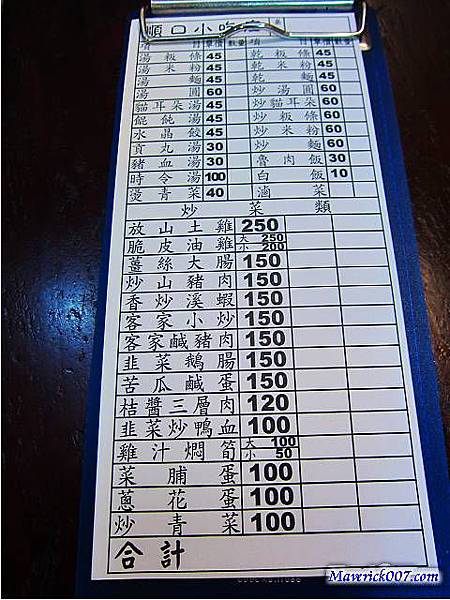 順口小吃店
項 目 單價 數量 項 目 單價 數量
湯粄條 45 乾粄條 45
湯米粉 45 乾米粉 45
湯麵 45 乾麵 45
湯圓 60 炒湯圓 60
貓耳朵湯 45 炒貓耳朵 60
餛飩湯 45 炒粄條 60
水晶餃 45 炒米粉 60
貢丸湯 30 炒麵 60
豬血湯 30 魯肉飯 30
時令湯 100 白飯 10
燙青菜 40 滷菜
炒菜類
放山土雞 250
脆皮油雞 大 250 小 200
薑絲大腸 150
炒山豬肉 150
香炒溪蝦 150
客家小炒 150
客家鹹豬肉 150
韭菜鵝腸 150
苦瓜鹹蛋 150
桔醬三層肉 120
韭菜炒鴨血 100
雞汁燜筍 大 100 小 50
菜脯蛋 100
蔥花蛋 100
炒青菜 100
合計
Maverick007.com